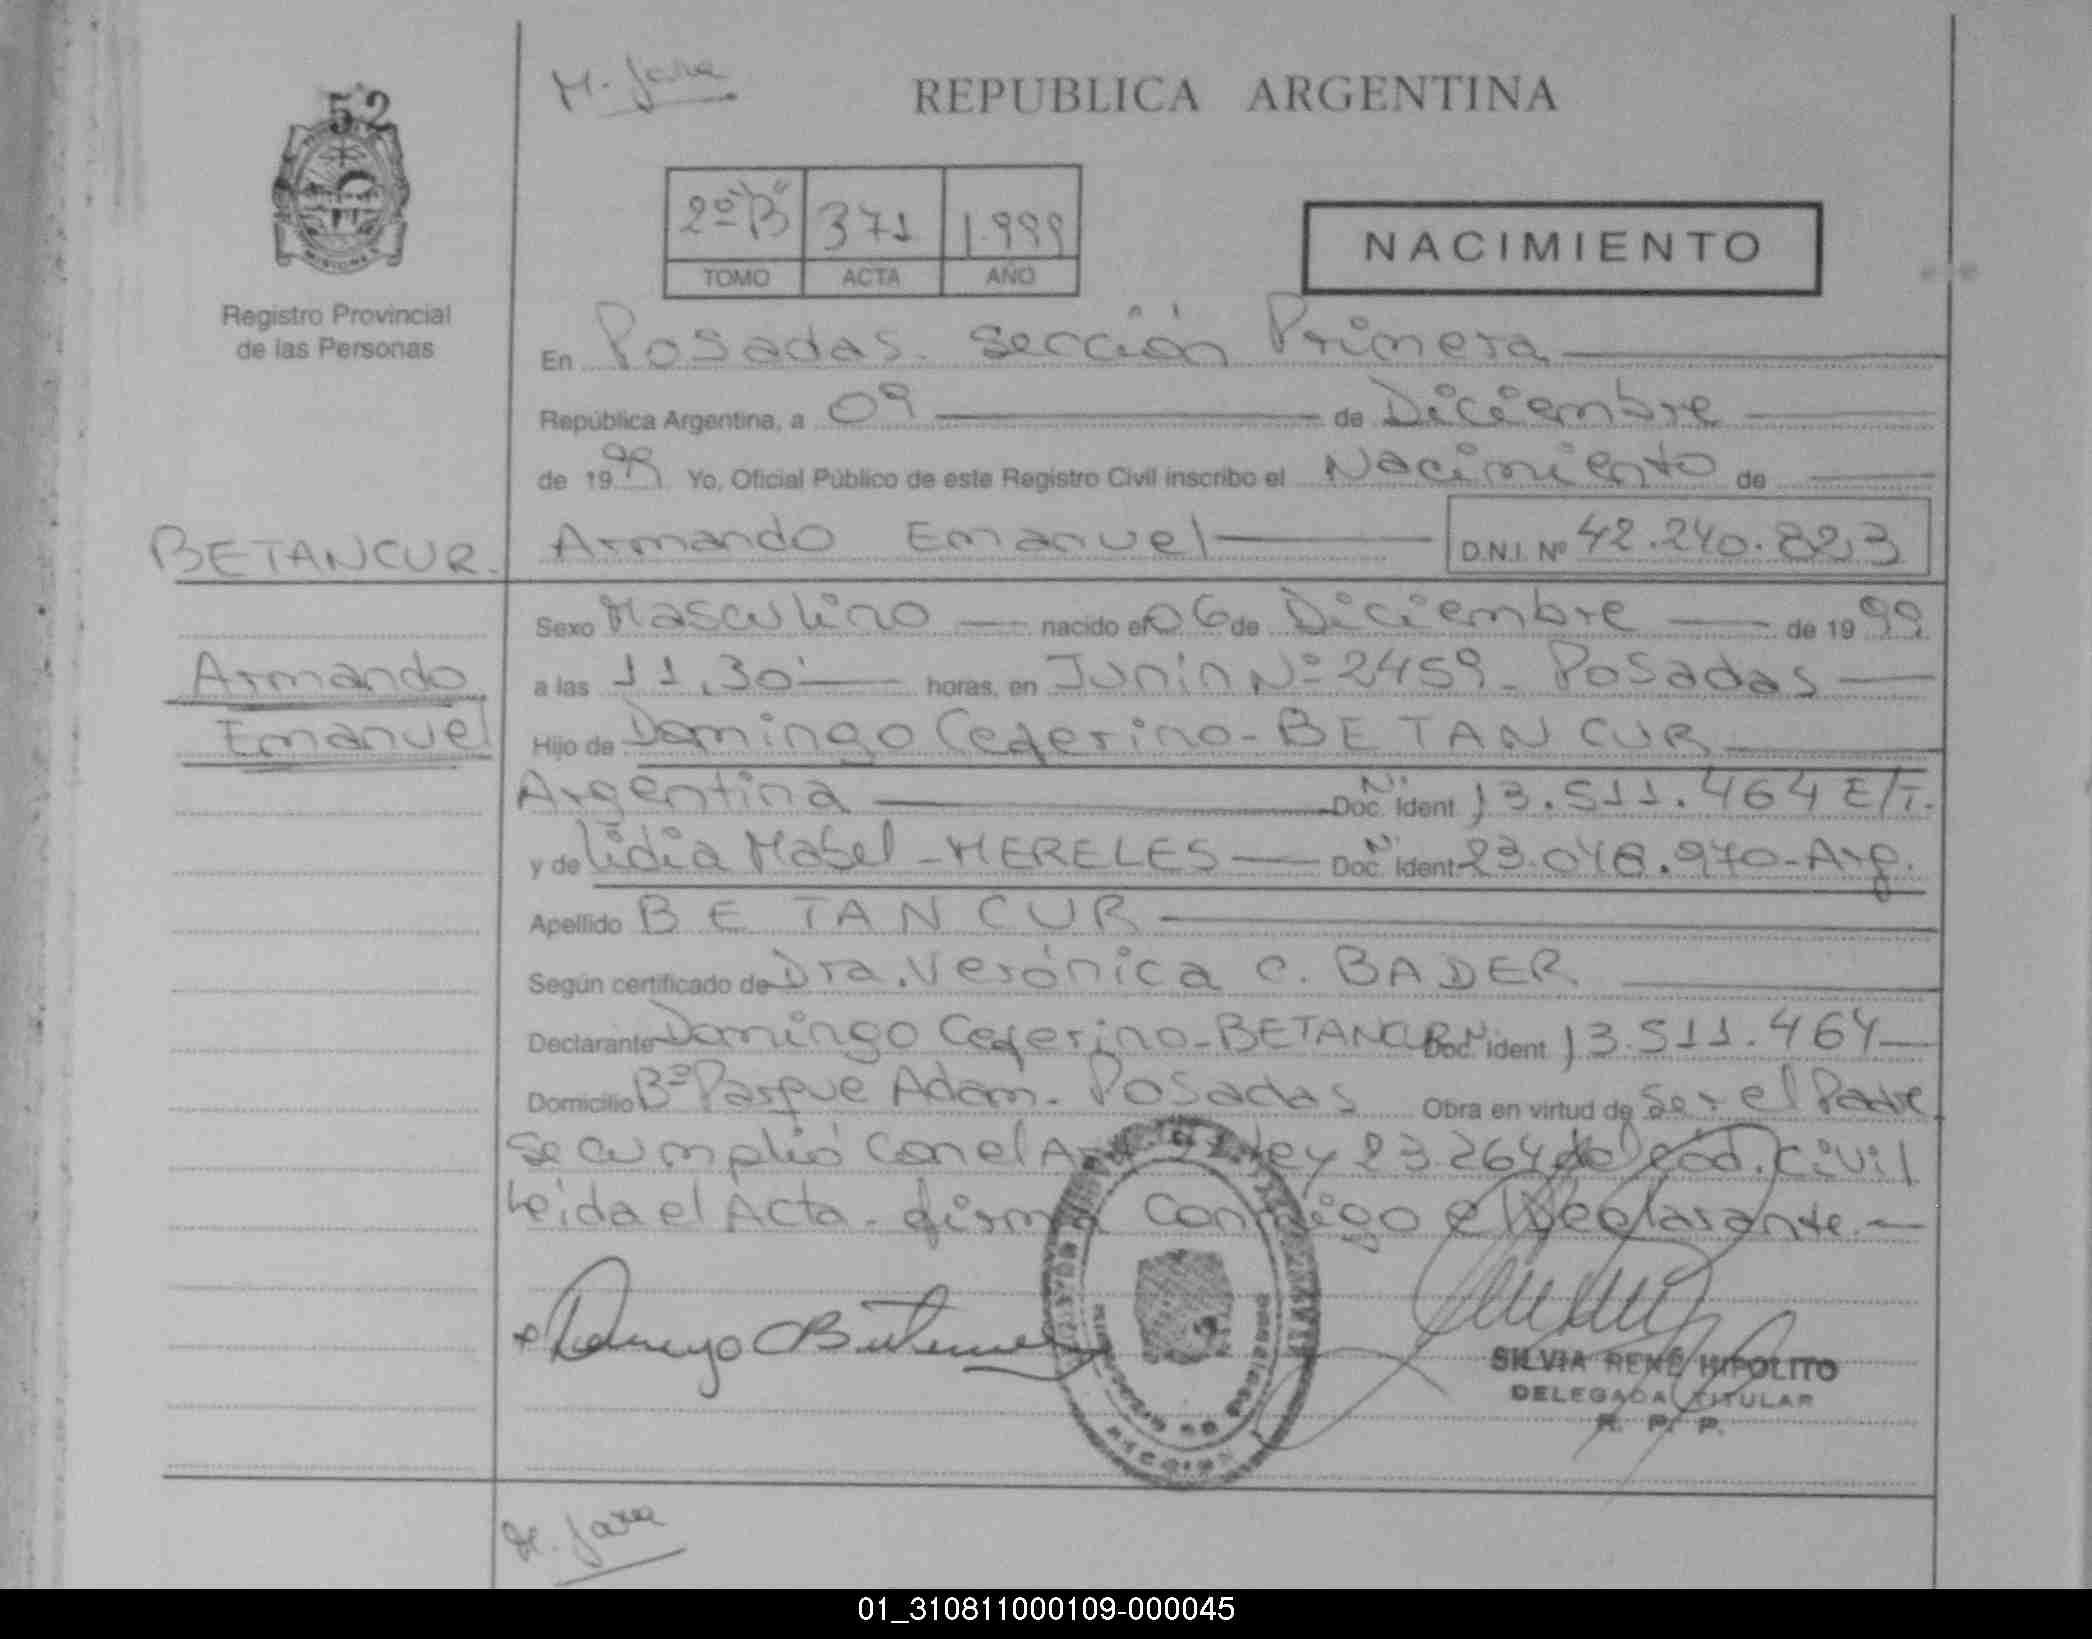 52
M. Jara
REPUBLICA ARGENTINA
2º "B" 371 1.999
TOMO ACTA AÑO
NACIMIENTO
MISIONES
Registro Provincial
de las Personas
En Posadas. Sección Primera
República Argentina, a 09 de Diciembre
de 1999 Yo, Oficial Público de este Registro Civil inscribo el Nacimiento de
BETANCUR.
Armando Emanuel D.N.I. Nº 42.240.823
Sexo Masculino nacido el 06 de Diciembre de 1999
Armando
Emanuel
a las 11,30 horas, en Junín Nº 2459 - Posadas
Hijo de Domingo Ceferino - BETANCUR
Argentina Doc. Ident Nº 13.511.464 E/T.
y de Lidia Mabel - MERELES Doc. Ident Nº 23.048.970 - Arg.
Apellido BETANCUR
Según certificado de Dra. Verónica C. BADER
Declarante Domingo Ceferino - BETANCUR Doc. Ident 13.511.464
Domicilio Bº Parque Adam. Posadas Obra en virtud de Ser el Padre
Se cumplió con el Ley 23.264 del Cód. Civil
Leída el Acta - firma Conmigo el Declarante. -
SILVIA RENÉ HIPOLITO
DELEGADA TITULAR
R. P. P.
M. Jara
01_310811000109-000045